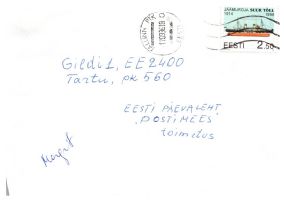 JÄÄMURDJA SUUR TÕLL
1914 1994
EESTI 2.50
Gildi 1, EE2400
Tartu, pk 560
EESTI PÄEVALEHT
"POSTIMEES
toimetus
Margit